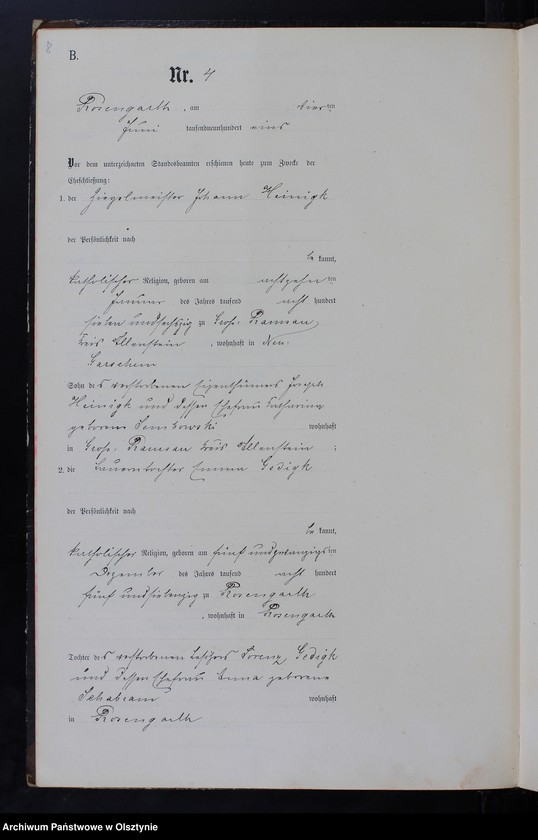 8
B.
Nr. 4
Rosengarth, am vier ten
Juni tausendneunhundert eins
Vor dem unterzeichneten Standesbeamten erschienen heute zum Zwecke der
Eheschließung:
1. der Ziegelmeister Johann Heinigk
der Persönlichkeit nach
be kannt,
katholischer Religion, geboren am achtzehn ten
Januar des Jahres tausend acht hundert
sieben und sechszig zu Groß Ramsau
Kreis Allenstein, wohnhaft in Neu-
Garschen
Sohn des verstorbenen Eigenthümers Joseph
Heinigk und dessen Ehefrau Katharina
geborene wohnhaft
in Groß Ramsau Kreis Allenstein;
2. die Bauerntochter Emma Gedigk
der Persönlichkeit nach
be kannt,
katholischer Religion, geboren am fünf undzwanzigs ten
Dezember des Jahres tausend acht hundert
fünf und siebenzig zu Rosengarth
, wohnhaft in Rosengarth
Tochter des verstorbenen Besitzers Lorenz Gedigk
und dessen Ehefrau Anna geborene
Schabram wohnhaft
in Rosengarth
Archiwum Państwowe w Olsztynie